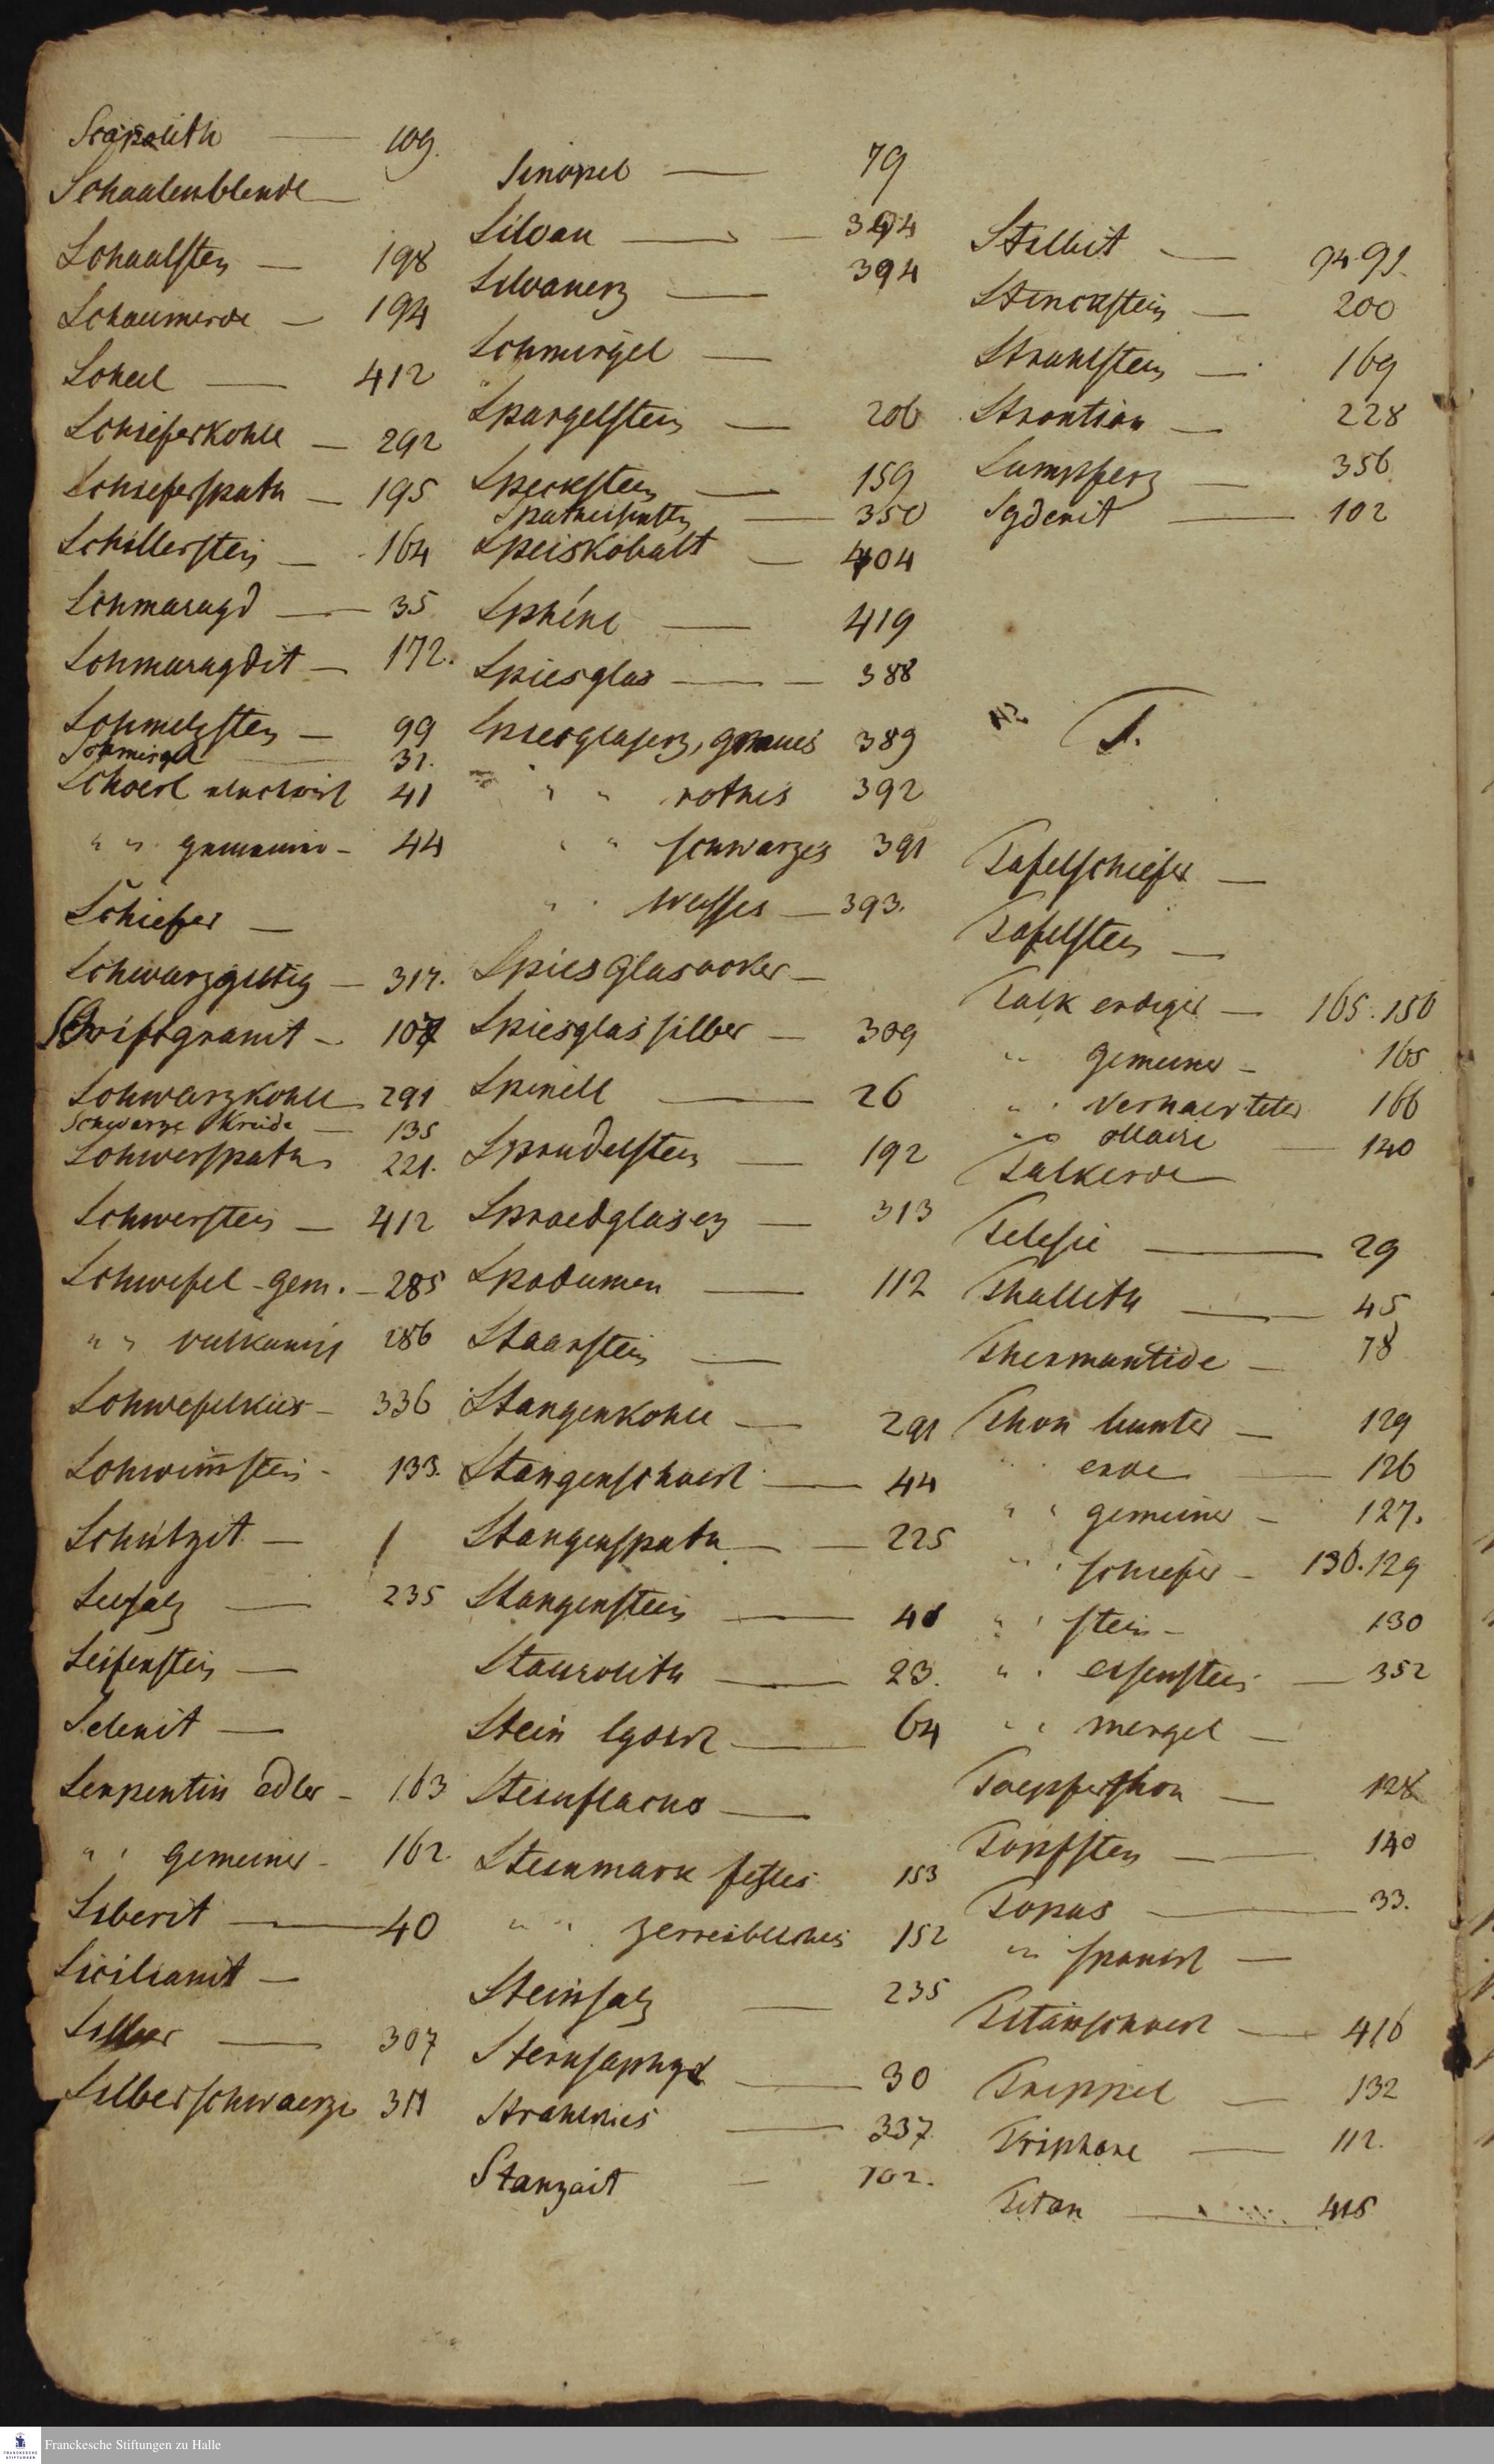 Scapolith — 109.
Schaalenblende —
Schaalstein — 198
Schaumerde — 194
Scheel — 412
Schieferkohle — 292
Schieferspath — 195
Schillerstein — 164
Schmaragd — 35
Schmaragdit — 172.
Schmelzstein — 99
Schmirgel — 31.
Schoerl electrisch 41
" " gemeiner - 44
Schiefer —
Schwarzgiltig — 317.
Schriftgranit - 107
Schwarzkohle 291
Schwarze Kreide — 135
Schwerspath 221.
Schwerstein — 412
Schwefel gem. — 285
" " vulkanisch 286
Schwefelkies - 336
Schwimstein - 133.
Schützit — 1
Seesalz — 235
Seifenstein —
Selenit —
Serpentin edler - 163
" " gemeiner - 162.
Siberit — 40
Sicilianit —
Silber — 307
Silberschwaerze 311
Sinopel — 79
Silvan — 394
Silvanerz — 394
Schmirgel —
Spargelstein — 206
Speckstein — 159
— 350
Speiskobalt — 404
Sphéne — 419
Spiesglas — 388
Spiesglaserz, graues 389
" " rothes 392
" " schwarzes 391
" " weisses — 393.
Spiesglasocker —
Spiesglassilber — 309
Spinell — 26
Sprudelstein — 192
Sproedglaserz — 313
Spodumen — 112
Staarstein —
Stangenkohle — 291
Stangenschoerl — 44
Stangenspath — 225
Stangenstein — 48
Staurolith — 23.
Stein — 64
Steinflachs —
Steinmark festes 153
" " zerreibliches 152
Steinsalz — 235
Sternsaphyr — 30
Strahlkies — 337
Stanzait — 102.
Stilbit — 94.95.
Stinckstein — 200
Strahlstein — 169
Strontian — 228
Sumpferz — 356
Syderit — 102
T.
Tafelschiefer —
Tafelstein —
Talk erdiger — 165.150
" gemeiner - 165
" " verhaerteter 166
" " ollaire — 140
Talkerde
Telesie — 29
Thallith — 45
Thermantide — 78
Thon bunter — 129
" erde — 126
" " gemeiner - 127.
" " schiefer - 130.129
" " stein - 130
" " eisenstein — 352
" " mergel —
Toepferthon — 128
Topfstein — 140
Topas — 33.
" schoerl —
Titanschoerl — 416
Trippel — 132
Triphane — 112.
Titan — 415
Franckesche Stiftungen zu Halle